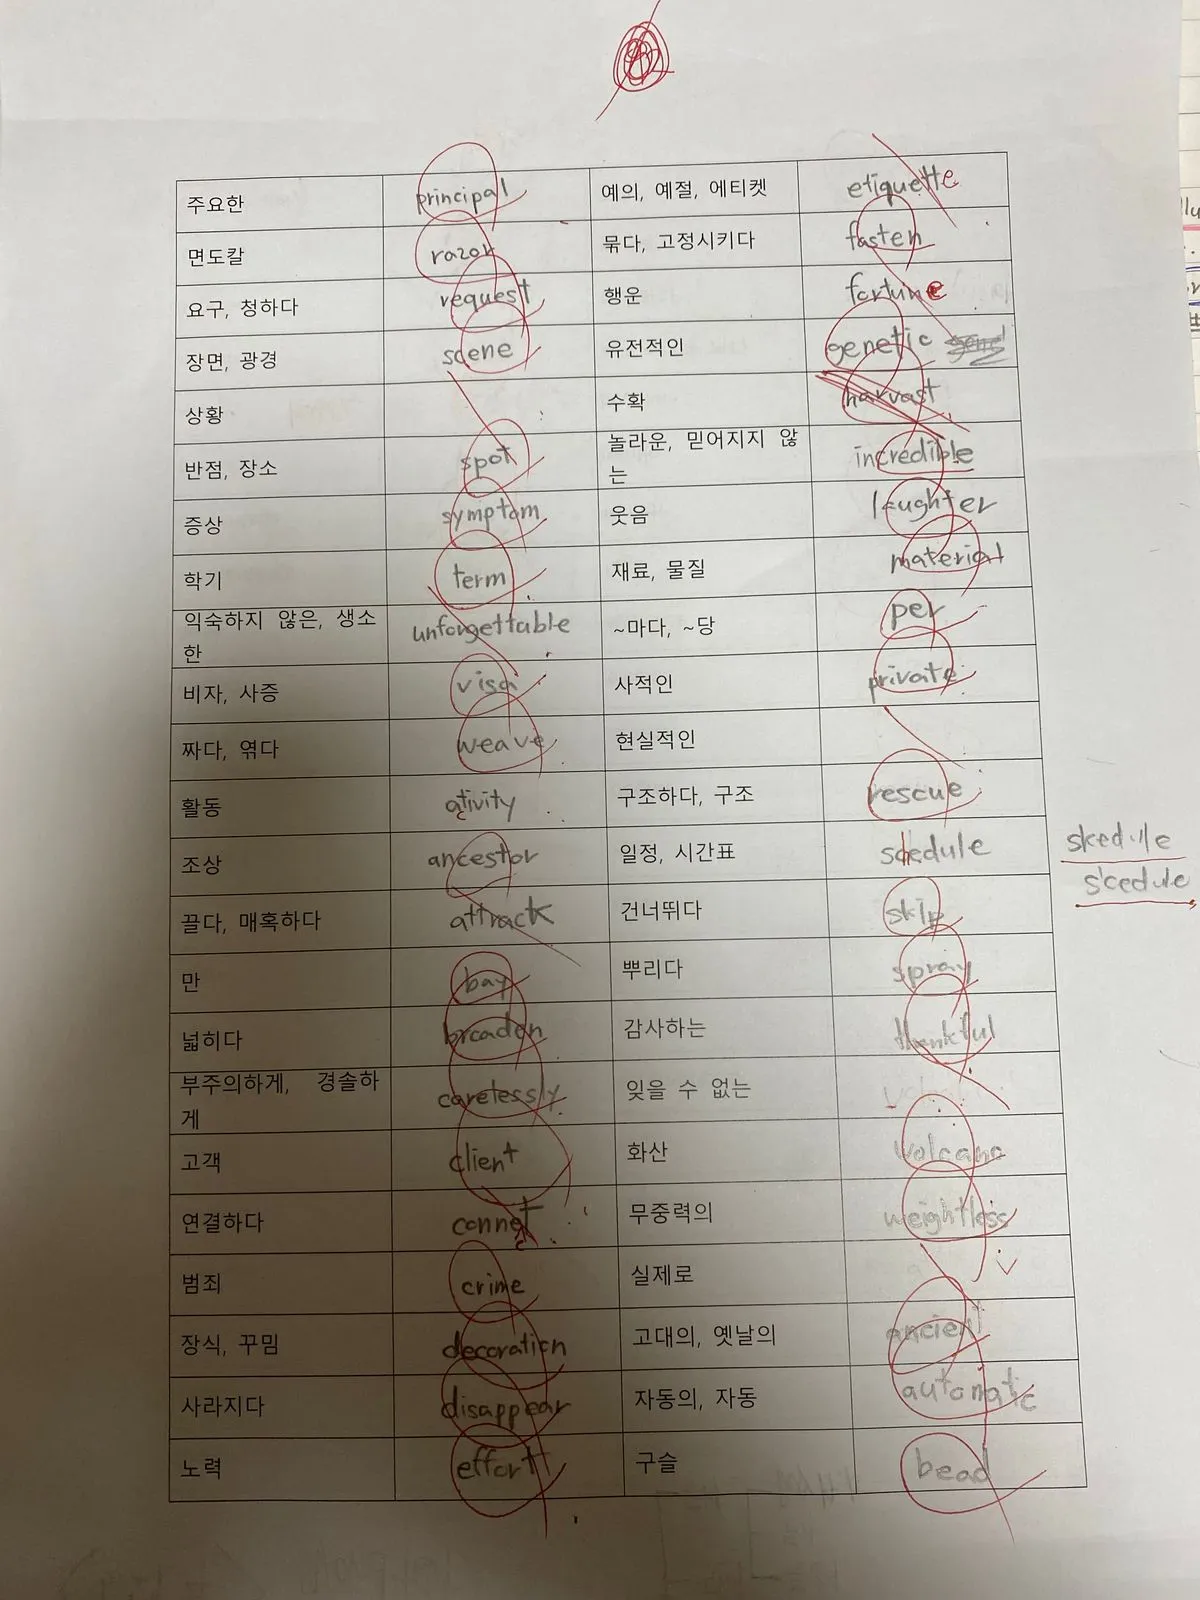 주요한 principal 예의, 예절, 에티켓 etiquette
면도칼 razor 묶다, 고정시키다 fasten
요구, 청하다 request 행운 fortune
장면, 광경 scene 유전적인 genetic
상황 수확 harvast
반점, 장소 spot 놀라운, 믿어지지 않
는 incredible
증상 symptom 웃음 laughter
학기 term 재료, 물질 material
익숙하지 않은, 생소
한 unforgettable ~마다, ~당 per
비자, 사증 visa 사적인 private
짜다, 엮다 weave 현실적인
활동 ativity 구조하다, 구조 rescue
c
조상 ancestor 일정, 시간표 schedule
skedule
scedule
끌다, 매혹하다 attrack 건너뛰다 skip
만 bay 뿌리다 spray
넓히다 broaden 감사하는 thankful
부주의하게, 경솔하
게 carelessly 잊을 수 없는
고객 client 화산 volcano
연결하다 connet 무중력의 weightless
범죄 crime 실제로
장식, 꾸밈 decoration 고대의, 옛날의 ancient
사라지다 disappear 자동의, 자동 automatic
노력 effort 구슬 bead